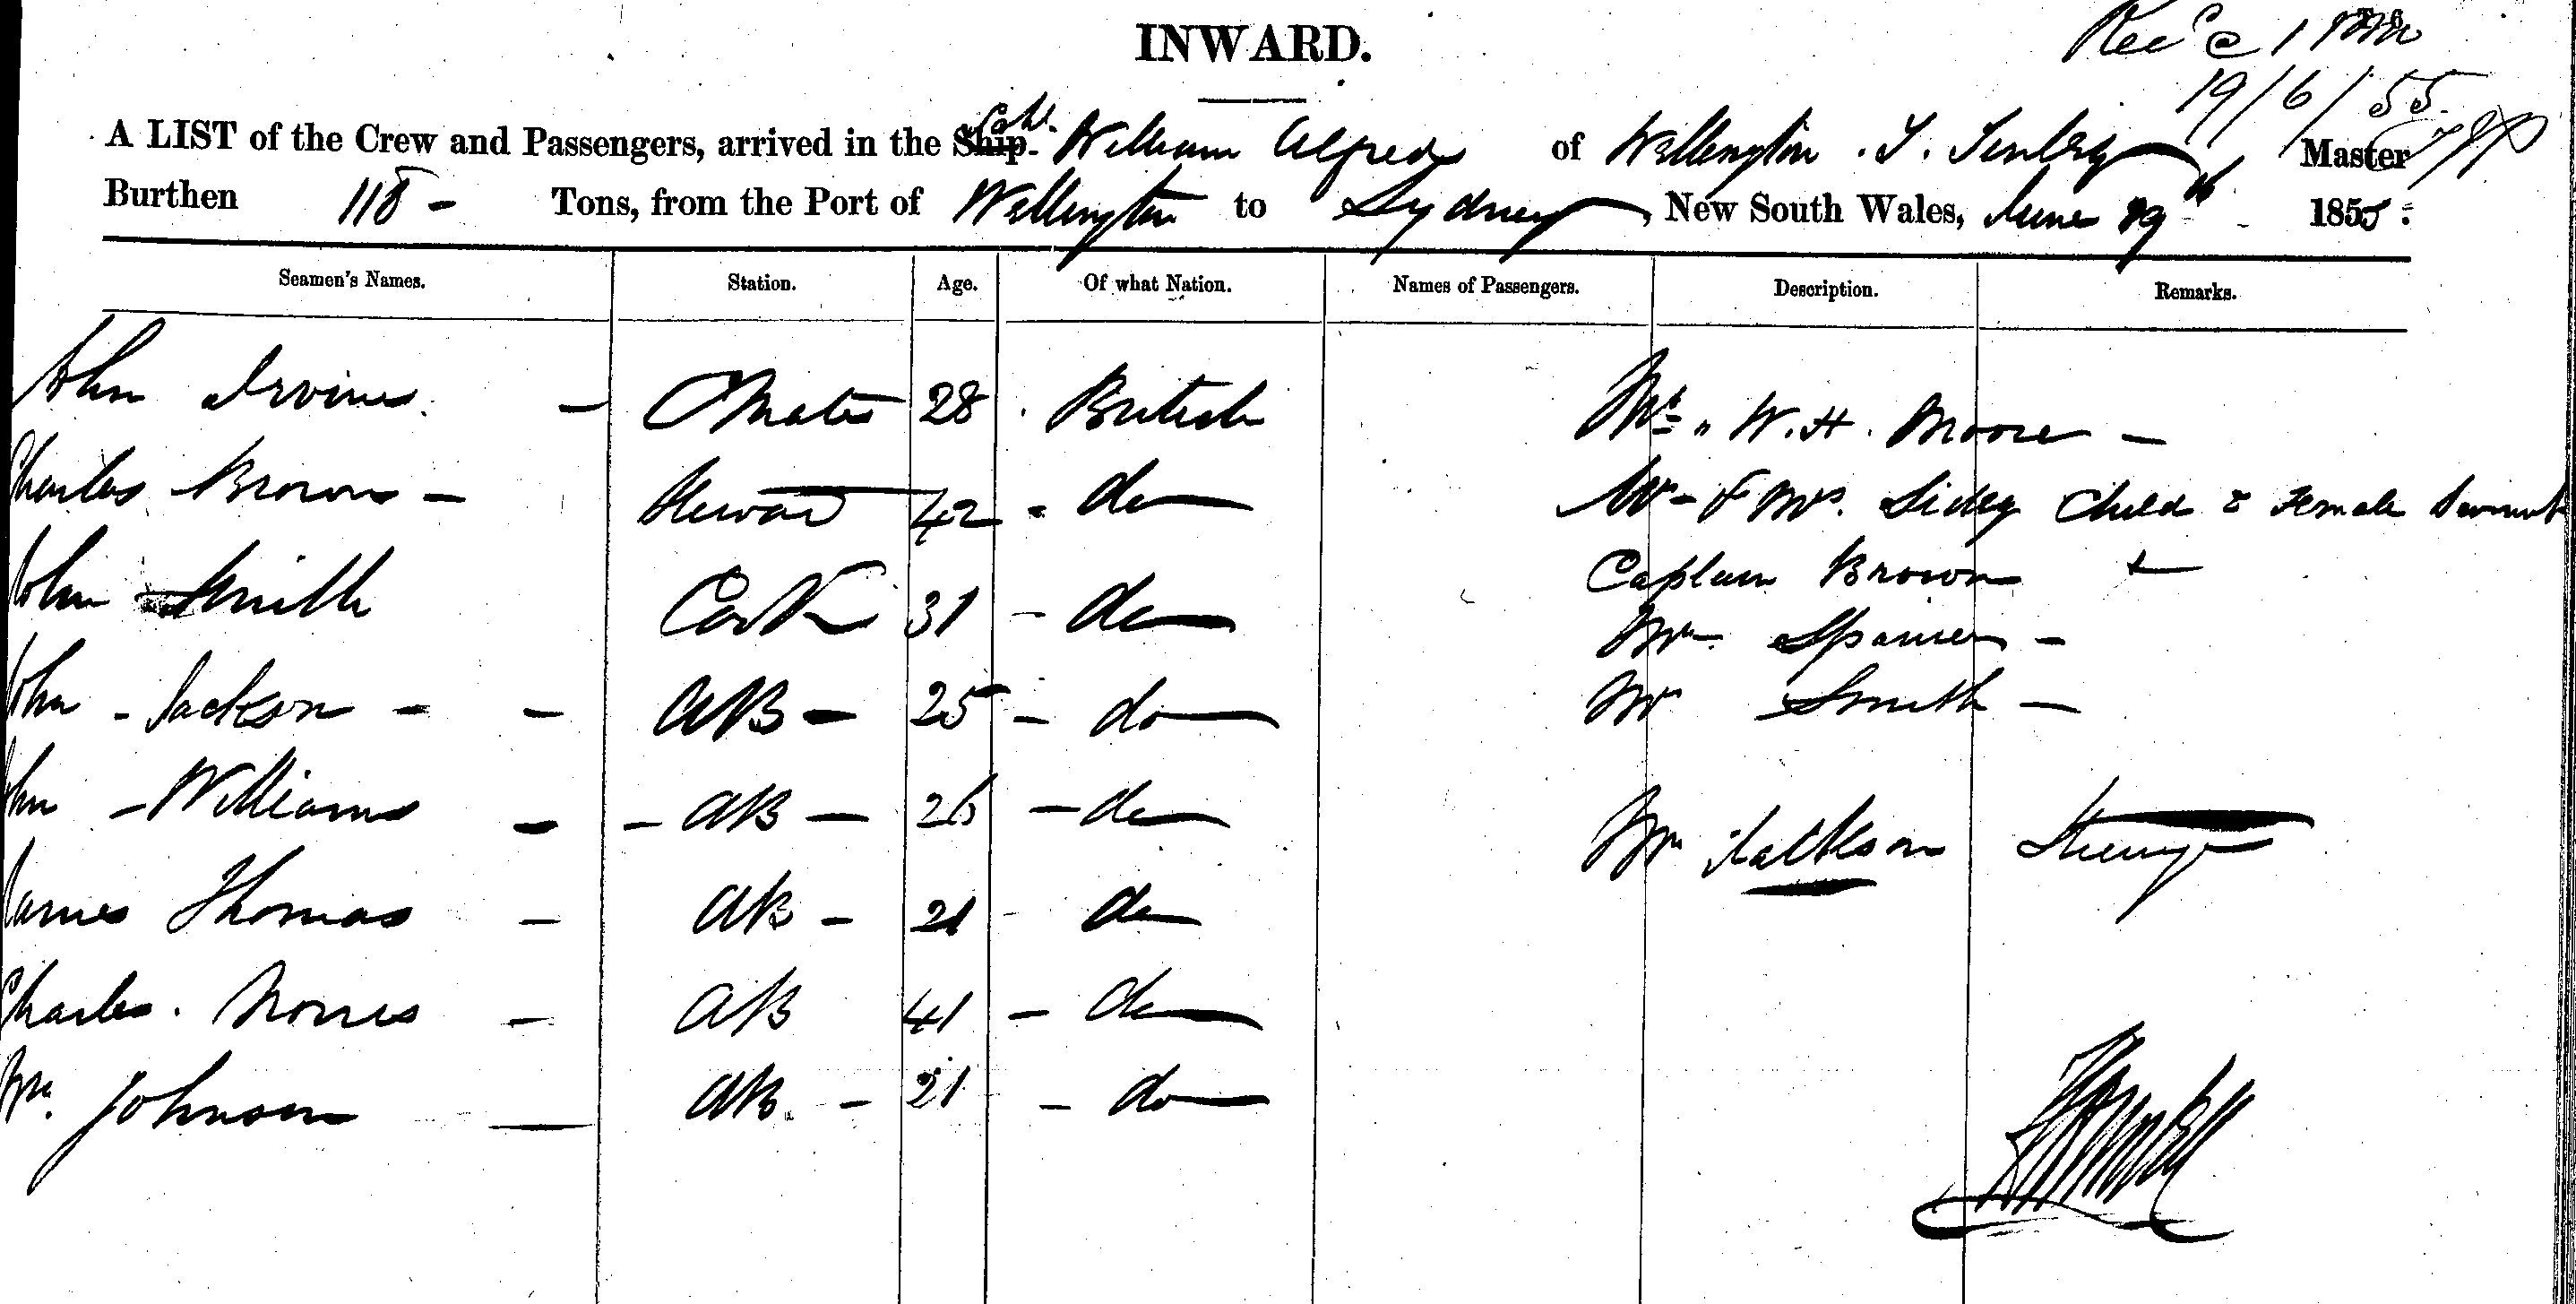 INWARD.
Rec'd @ 1 PM
19/6/55.
A LIST of the Crew and Passengers, arrived in the Ship Schr. William Alfred of Wellington . Tinley Master
Burthen 118 - Tons, from the Port of Wellington to Sydney, New South Wales, June 19th 1855.
Seamen's Names. Station. Age. Of what Nation. Names of Passengers. Description. Remarks.
John Irvine. - C Mate 28 British Mr. W. H. Moore -
Charles Brown - Steward 42 - do Mr - & Mrs. Sidey Child & Female Servant
John Smith Cook 31 - do Captain Brown
Mr. Spanier -
John - Jackson - - AB - 25 - do Mr Smith -
John - Williams - - AB - 26 - do Mr Jackson Steerage
James Thomas - AB - 21 - do
Charles. Norris - AB 41 - do
Wm. Johnson - AB. - 21 - do